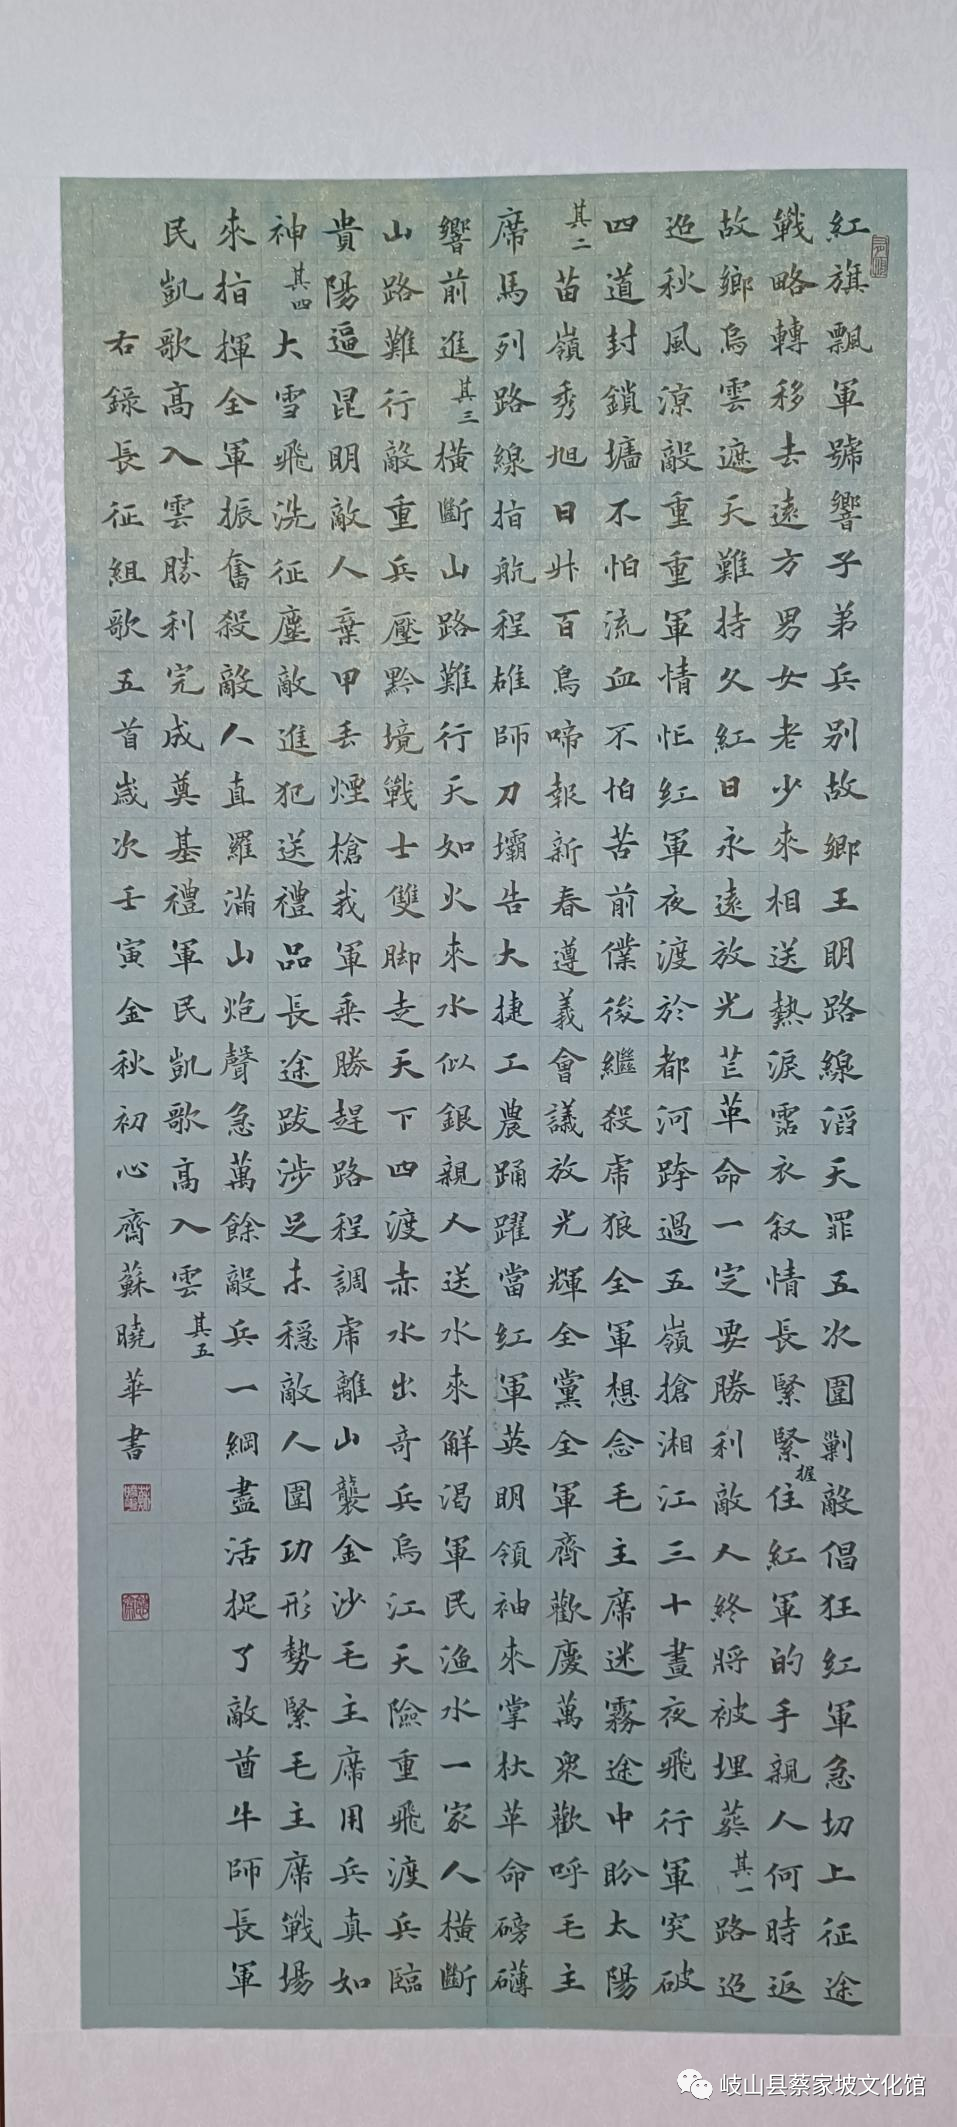 紅旗飄軍號響子弟兵別故鄉王明路線滔天罪五次圍剿敵倡狂紅軍急切上征途
戰略轉移去遠方男女老少來相送熱淚霑衣叙情長緊緊握住紅軍的手親人何時返
故鄉烏雲遮天難持久紅日永遠放光芒革命一定要勝利敵人終將被埋葬其一路迢
迢秋風涼敵重重軍情忙紅軍夜渡於都河跨過五嶺搶湘江三十晝夜飛行軍突破
四道封鎖墻不怕流血不怕苦前僕後繼殺虎狼全軍想念毛主席迷霧途中盼太陽
其二苗嶺秀旭日升百鳥啼報新春遵義會議放光輝全黨全軍齊歡慶萬衆歡呼毛主
席馬列路線指航程雄師刀壩告大捷工農踴躍當紅軍英明領袖來掌柁革命磅礴
響前進其三橫斷山路難行天如火來水似銀親人送水來解渴軍民漁水一家人橫斷
山路難行敵重兵壓黔境戰士雙脚走天下四渡赤水出奇兵烏江天險重飛渡兵臨
貴陽逼昆明敵人棄甲丟煙槍我軍乘勝趕路程調虎離山襲金沙毛主席用兵真如
神其四大雪飛洗征塵敵進犯送禮品長途跋涉足未穩敵人圍功形勢緊毛主席戰場
來指揮全軍振奮殺敵人直羅滿山炮聲急萬餘敵兵一綱盡活捉了敵酋牛師長軍
民凱歌高入雲勝利完成奠基禮軍民凱歌高入雲其五
右錄長征組歌五首歲次壬寅金秋初心齊蘇曉華書
岐山县蔡家坡文化馆